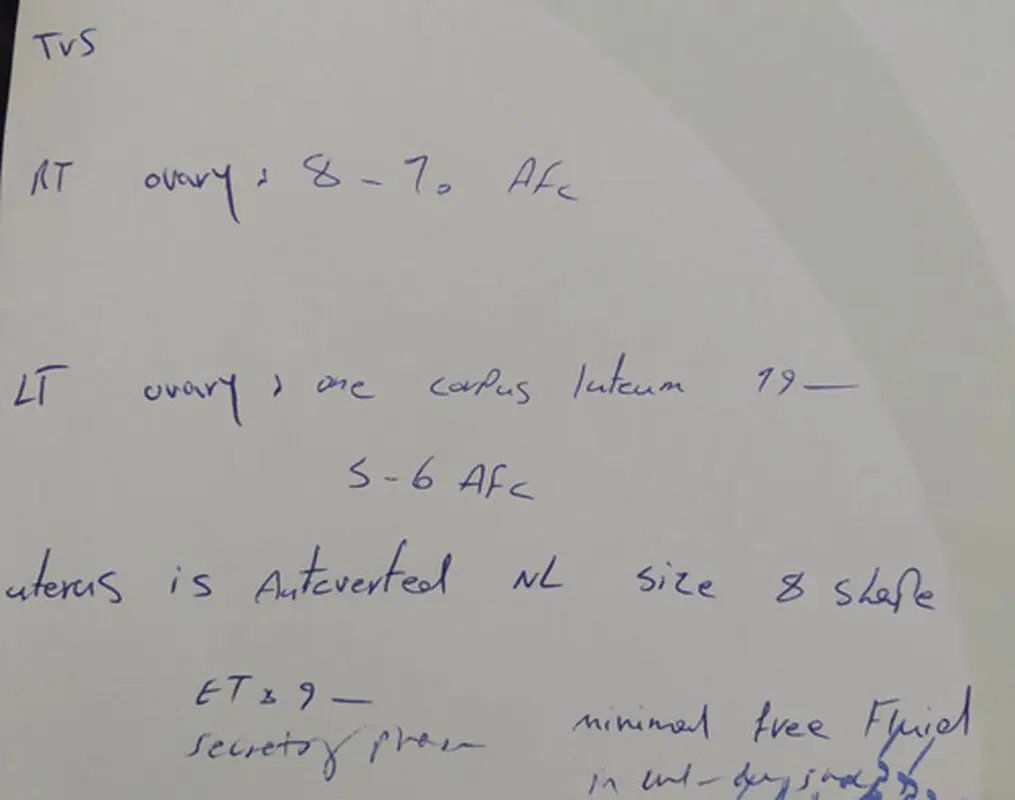 TVS
RT ovary: 8-10 AFC
LT ovary: one corpus luteum 19 —
5-6 AFC
uterus is Anteverted NL size & shape
ET: 9 —
secretory phase
minimal free Fluid
in